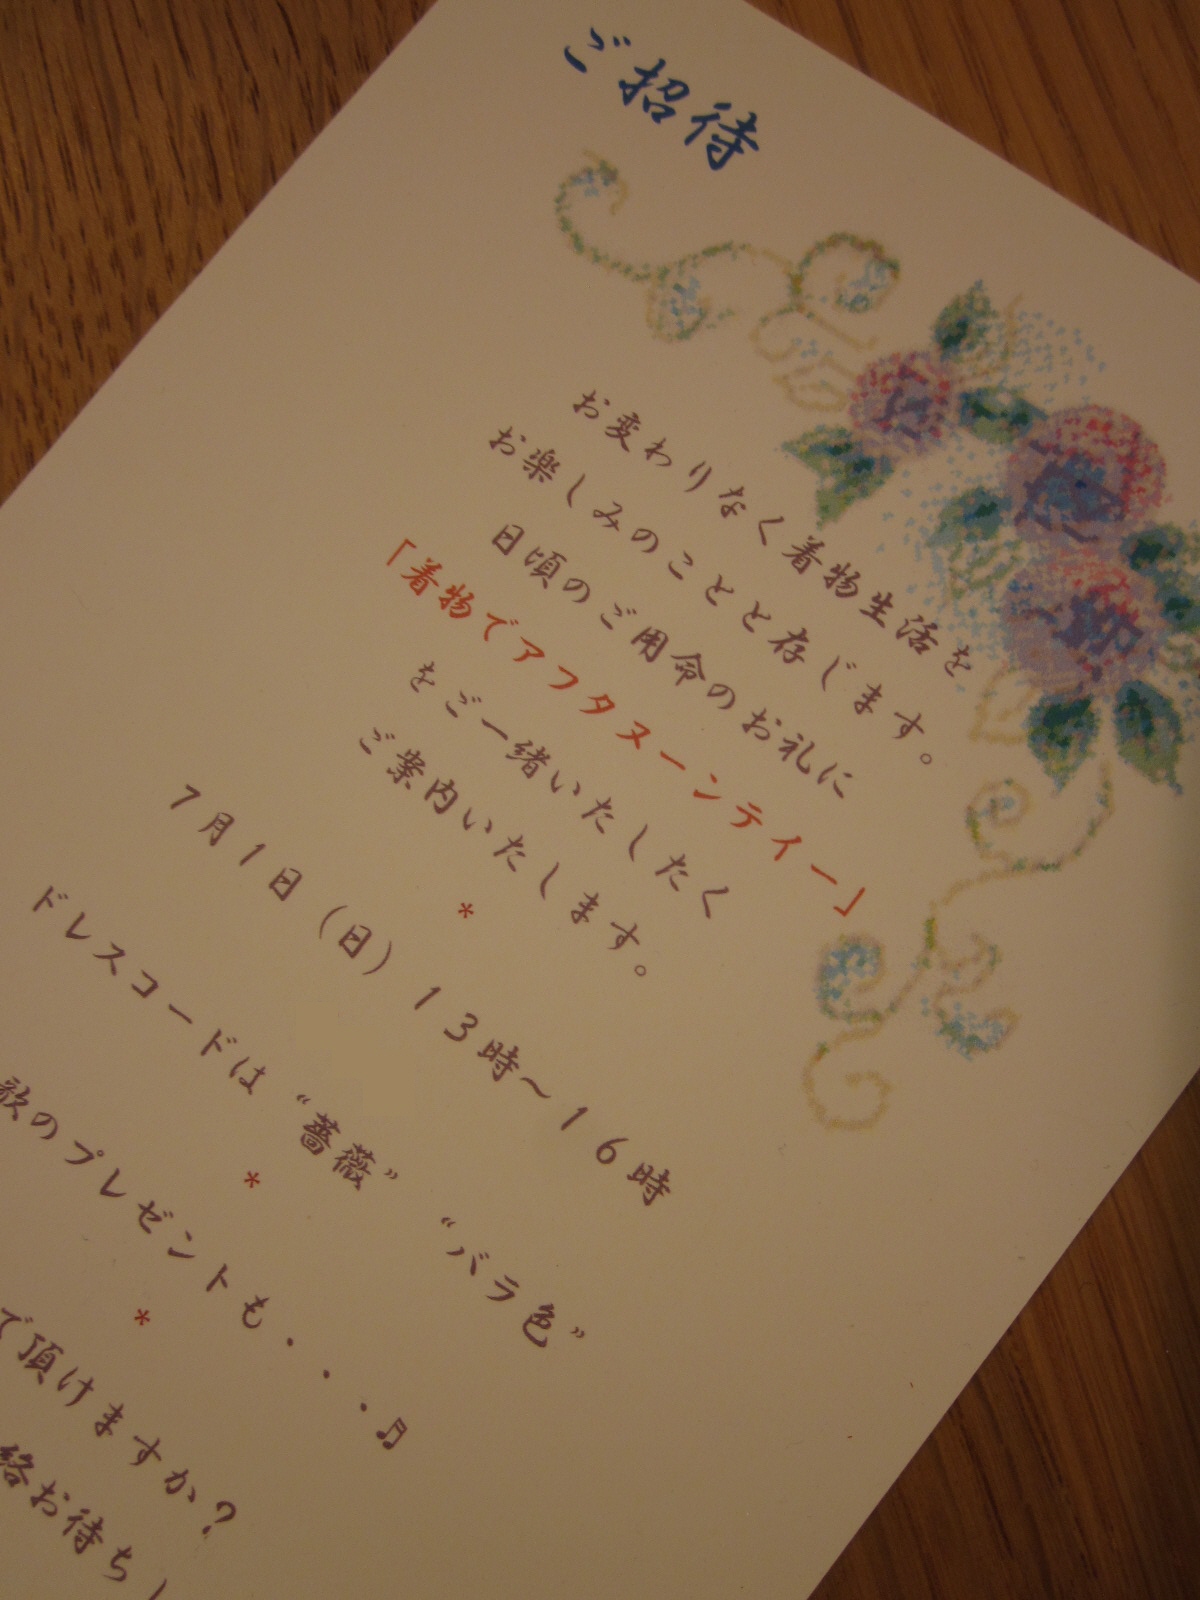 ご招待
お変わりなく着物生活を
お楽しみのことと存じます。
日頃のご用命のお礼に
「着物でアフタヌーンティー」
をご一緒いたしたく
ご案内いたします。
*
7月1日(日)13時〜16時
ドレスコードは “薔薇” “バラ色”
*
歌のプレゼントも・・・♫
*
で頂けますか?
絡お待ちし